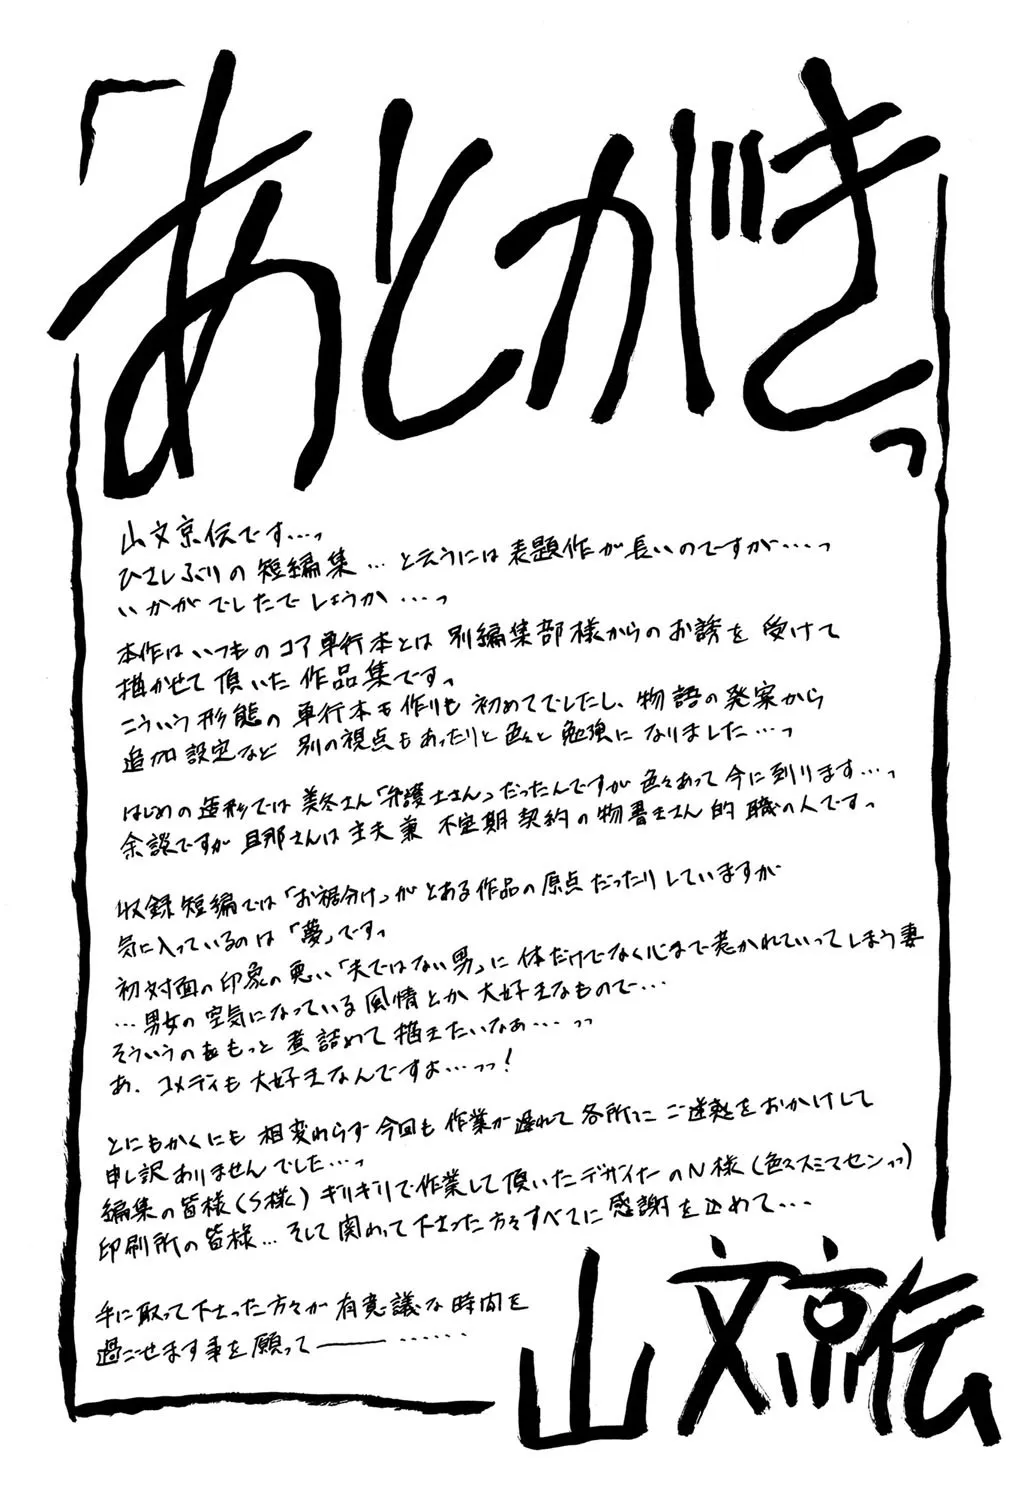 「あとがきっ
山文京伝です…っ
ひさしぶりの短編集…と云うには表題作が長いのですが…っ
いかがでしたでしょうか…っ
本作はいつものコア単行本とは別編集部様からのお誘を受けて
描かせて頂いた作品集ですっ
こういう形態の単行本を作りも初めてでしたし、物語の発案から
追加設定など別の視点もあったりと色々と勉強になりました…っ
はじめの造形では美冬さん「弁護士さん」だったんですが色々あって今に到ります…っ
余談ですが旦那さんは主夫兼不定期契約の物書きさん的職の人ですっ
収録短編では「お裾分け」がとある作品の原点だったりしていますが
気に入っているのは「夢」ですっ
初対面の印象の悪い「夫ではない男」に体だけでなく心まで惹かれていってしまう妻
…男女の空気になっている風情とか大好きなもので…
そういうのをもっと煮詰めて描きたいなぁ…っっ
あ、コメディも大好きなんですよ…っっ！
とにもかくにも相変わらず今回も作業が遅れて各所にご迷惑をおかけして
申し訳ありませんでした…っ
編集の皆様（S様）ギリギリで作業して頂いたデザイナーのN様（色々スミマセンっっ）
印刷所の皆様…そして関わって下さった方々すべてに感謝を込めて…
手に取って下さった方々が有意義な時間を
過ごせます事を願って――……
山文京伝